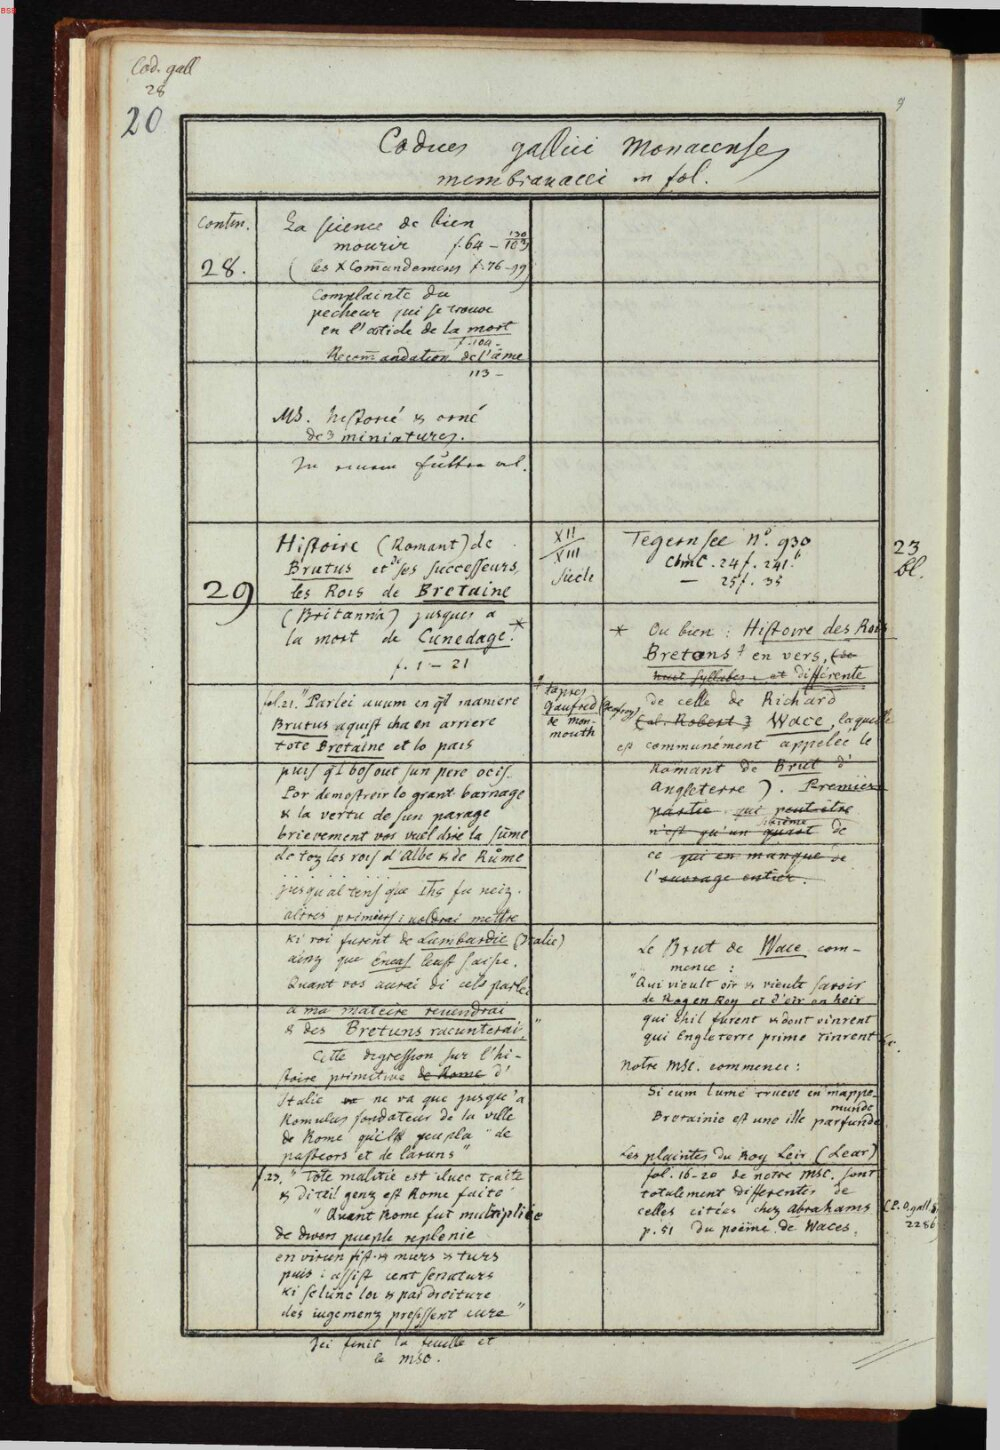 BSB
Cod. gall
28
20
Codices gallici Monacenses
membranacei in fol.
Contin.
28.
La science de bien
mourir f. 64 – 103
130
(les X Com̄andemens f. 76–99)
Complainte du
pecheur qui se trouve
en l'article de la mort
f. 104 –
Recom̄andation de l'âme
113 –
MS. historié & orné
de 3 miniatures.
29
Histoire (Romant) de
Brutus et de ses successeurs,
les Rois de Bretaine
(Britannia) jusques a
la mort de Cunedage. *
f. 1 – 21
fol. 21. "Parlei avum en q̄l maniere
Brutus aquist cha en arriere
tote Bretaine et lo pais
puis q'l bos out sun pere ocis.
Por demostreir lo grant barnage
& la vertu de sun parage
brievement vos vuel dire la sume
de toz les rois d'Albe & de Rume
jusqu al tens que Ihs fu neiz.
altres primiers i voldrai mettre
ki roi furent de Lumbardie (Italie)
ainz que Eneas l'eust saisie.
Quant vos aurai di cels parlei
a ma mateire revendrai
& des Bretuns racunterai."
Cette degression sur l'hi-
stoire primitive de Rome d'
Italie ne va que jusqu'a
Romulus fondateur de la ville
de Rome qu'il peupla "de
pasteors et de laruns"
f. 23. "Tote malitie est iluec traite
& di teil genz est Rome faite
"Quant Rome fut multipliée
de divers pueple replenie
environ fist & murs & turs
puis i assist cent senaturs
ki selunc loi & par droiture
des iugemenz presissent cure"
Ici finit la feuille et
le MSC.
XII
XIII
Siècle
Tegernsee No. 930
ChmC. 24 f. 241.
— 25 f. 35
23
bl.
* Ou bien: Histoire des Rois
Bretons ‡ en vers, (de
huit syllabes, et différente
‡ d'apres
Gaufred (Geofroy)
de Mon-
mouth
de celle de Richard
(al. Robert) Wace, laquelle
est communément appelée le
Romant de Brut d'
Angleterre). Premiere
partie qui peut-être
n'est qu'un quart de
ce qui en manque de
l'ouvrage entier.
Le Brut de Wace com-
mence:
"Qui vieult oir & vieult savoir
de Roy en Roy et d'oir en hoir
qui chil furent & dont vinrent
qui Engleterre prime tinrent &c.
Notre MSC. commence:
Si cum lume trueve en mappe-
munde
Bretainie est une ille parfunde
Les plaintes du Roy Leir (Lear)
fol. 16–20 de notre MSC. sont
totalement differentes de
celles citées chez Abrahams
p. 51 du poëme de Waces.
(P.O.gall
2286)